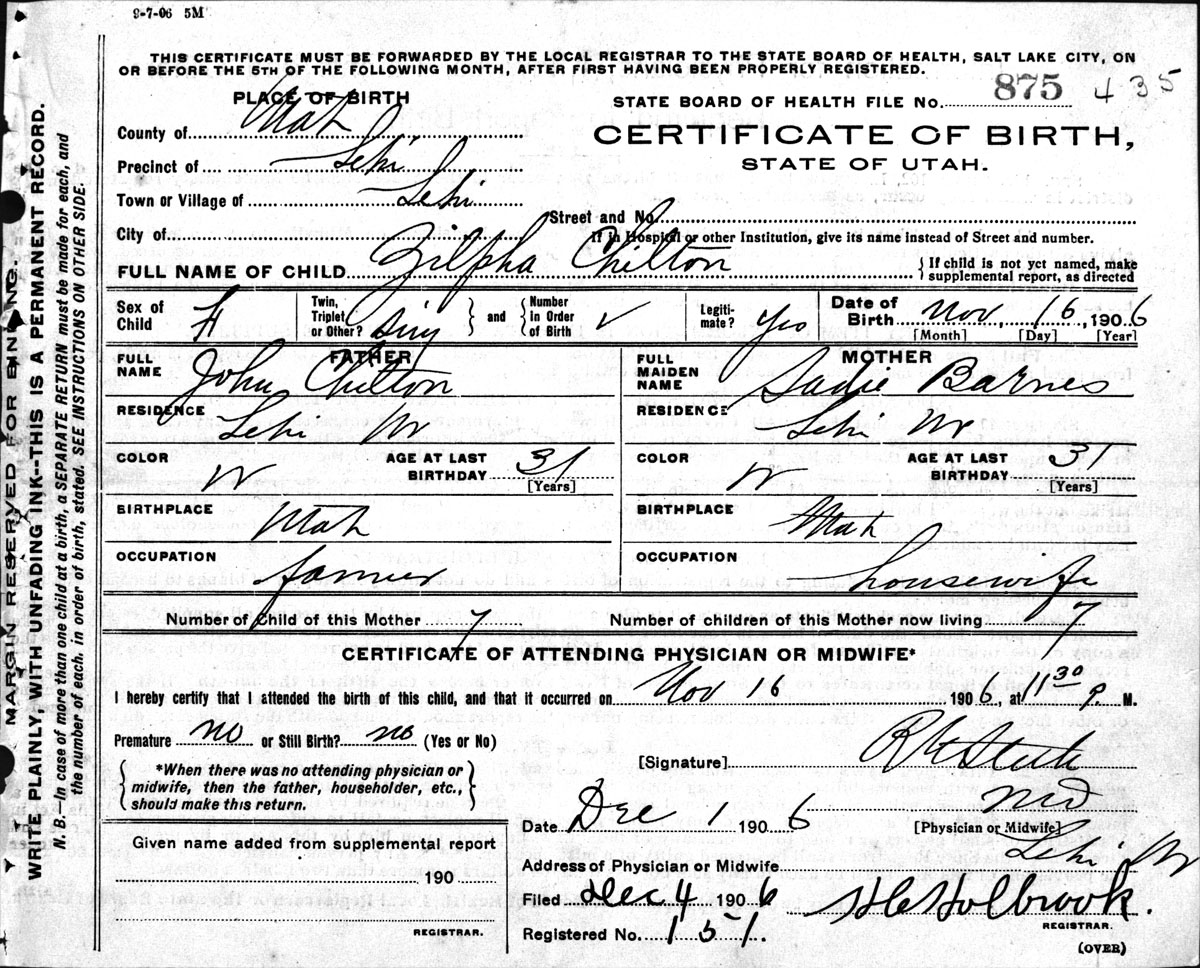 9-7-06 5M
THIS CERTIFICATE MUST BE FORWARDED BY THE LOCAL REGISTRAR TO THE STATE BOARD OF HEALTH, SALT LAKE CITY, ON
OR BEFORE THE 5TH OF THE FOLLOWING MONTH, AFTER FIRST HAVING BEEN PROPERLY REGISTERED.
MARGIN RESERVED FOR BINDING.
WRITE PLAINLY, WITH UNFADING INK--THIS IS A PERMANENT RECORD.
N. B.—In case of more than one child at a birth, a SEPARATE RETURN must be made for each, and
the number of each, in order of birth, stated. SEE INSTRUCTIONS ON OTHER SIDE.
PLACE OF BIRTH
STATE BOARD OF HEALTH FILE No. 875 435
County of Utah
CERTIFICATE OF BIRTH,
Precinct of Lehi
STATE OF UTAH.
Town or Village of Lehi
Street and No.
City of
If in Hospital or other Institution, give its name instead of Street and number.
FULL NAME OF CHILD Zilpha Chilton
{ If child is not yet named, make
supplemental report, as directed
Sex of Child F
Twin, Triplet or Other? Sing } and { Number In Order of Birth √
Legiti-mate? Yes
Date of Birth Nov, 16, 1906
[Month] [Day] [Year]
FATHER
FULL NAME John Chilton
RESIDENCE Lehi Ut
COLOR W AGE AT LAST BIRTHDAY 31
[Years]
BIRTHPLACE Utah
OCCUPATION farmer
MOTHER
FULL MAIDEN NAME Sadie Barnes
RESIDENCE Lehi Ut
COLOR W AGE AT LAST BIRTHDAY 31
[Years]
BIRTHPLACE Utah
OCCUPATION housewife
Number of Child of this Mother 7 Number of children of this Mother now living 7
CERTIFICATE OF ATTENDING PHYSICIAN OR MIDWIFE*
I hereby certify that I attended the birth of this child, and that it occurred on Nov 16 1906, at 11 30 P. M.
Premature no or Still Birth? no (Yes or No)
{ *When there was no attending physician or
midwife, then the father, householder, etc.,
should make this return. }
[Signature]
MD
[Physician or Midwife]
Date Dec 1 1906
Given name added from supplemental report
190
REGISTRAR.
Address of Physician or Midwife Lehi Ut
Filed Dec 4 1906 Holbrook.
REGISTRAR.
Registered No. 151.
(OVER)